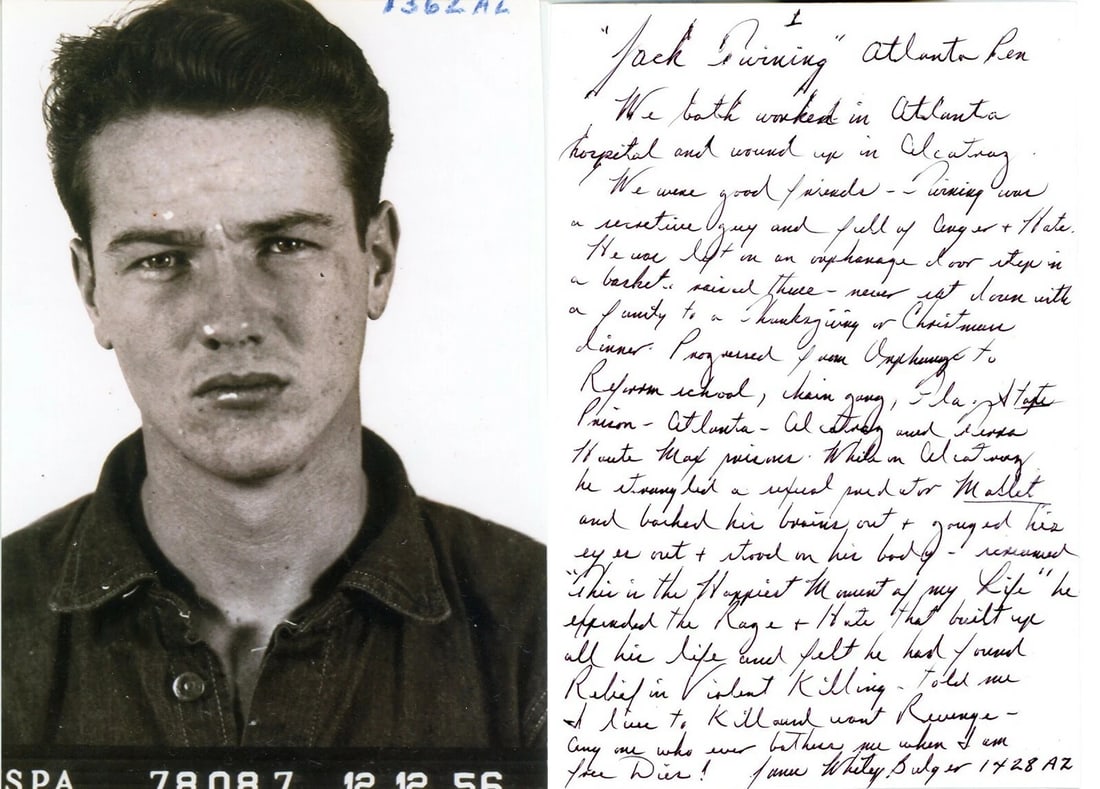 1362 AZ
SPA 78087 12 12 56
1
"Jack Twining" Atlanta Pen
We both worked in Atlanta
hospital and wound up in Alcatraz.
We were good friends - Twining was
a secretive guy and full of Anger + Hate.
He was left on an orphanage door step in
a basket. raised there - never sat down with
a family to a Thanksgiving or Christmas
dinner. Progressed from Orphanage to
Reform school, chain gang, Fla. State
Prison - Atlanta - Alcatraz and Terra
Haute Max prisons. While on Alcatraz
he strangled a sexual predator Mollet
and bashed his brains out + gouged his
eyes out + stood on his body - screamed
"This is the Happiest Moment of my Life" he
expended the Rage + Hate that built up
all his life and felt he had found
Relief in Violent Killing - told me
I live to Kill and want Revenge -
Any one who ever bothers me when I am
free Dies! James Whitey Bulger 1428 AZ